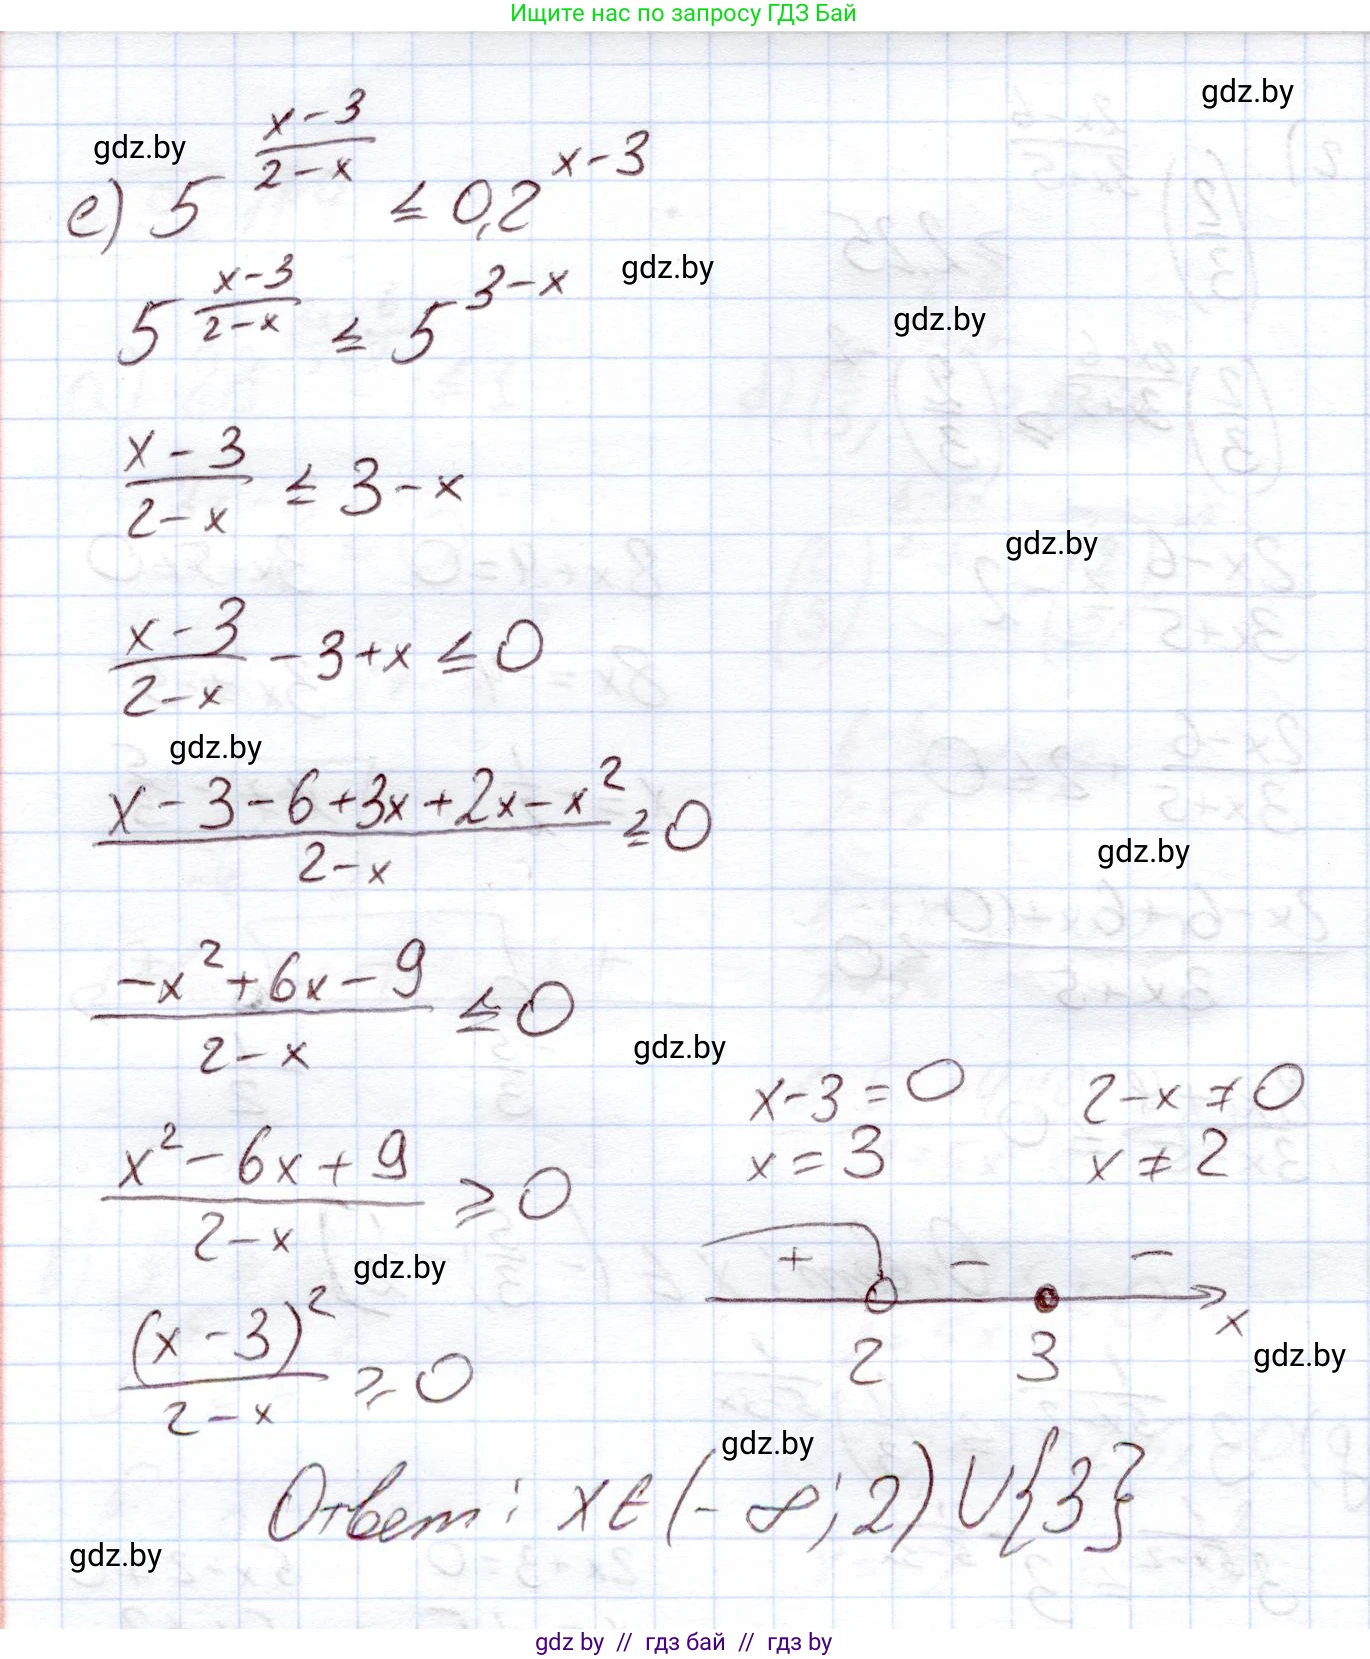 Ищите нас по запросу ГДЗ Бай
gdz.by
gdz.by
е) 5^((x-3)/(2-x)) ≤ 0,2^(x-3)
gdz.by
5^((x-3)/(2-x)) ≤ 5^(3-x)
gdz.by
(x-3)/(2-x) ≤ 3-x
gdz.by
(x-3)/(2-x) - 3+x ≤ 0
gdz.by
(x-3-6+3x+2x-x²)/(2-x) ≥ 0
gdz.by
(-x²+6x-9)/(2-x) ≤ 0
gdz.by
x-3=0 2-x≠0
x=3 x≠2
(x²-6x+9)/(2-x) ≥ 0
gdz.by
+ - -
2 3 x
gdz.by
(x-3)²/(2-x) ≥ 0
gdz.by
Ответ: x∈(-∞;2)∪{3}
gdz.by
gdz by // гдз бай // гдз by